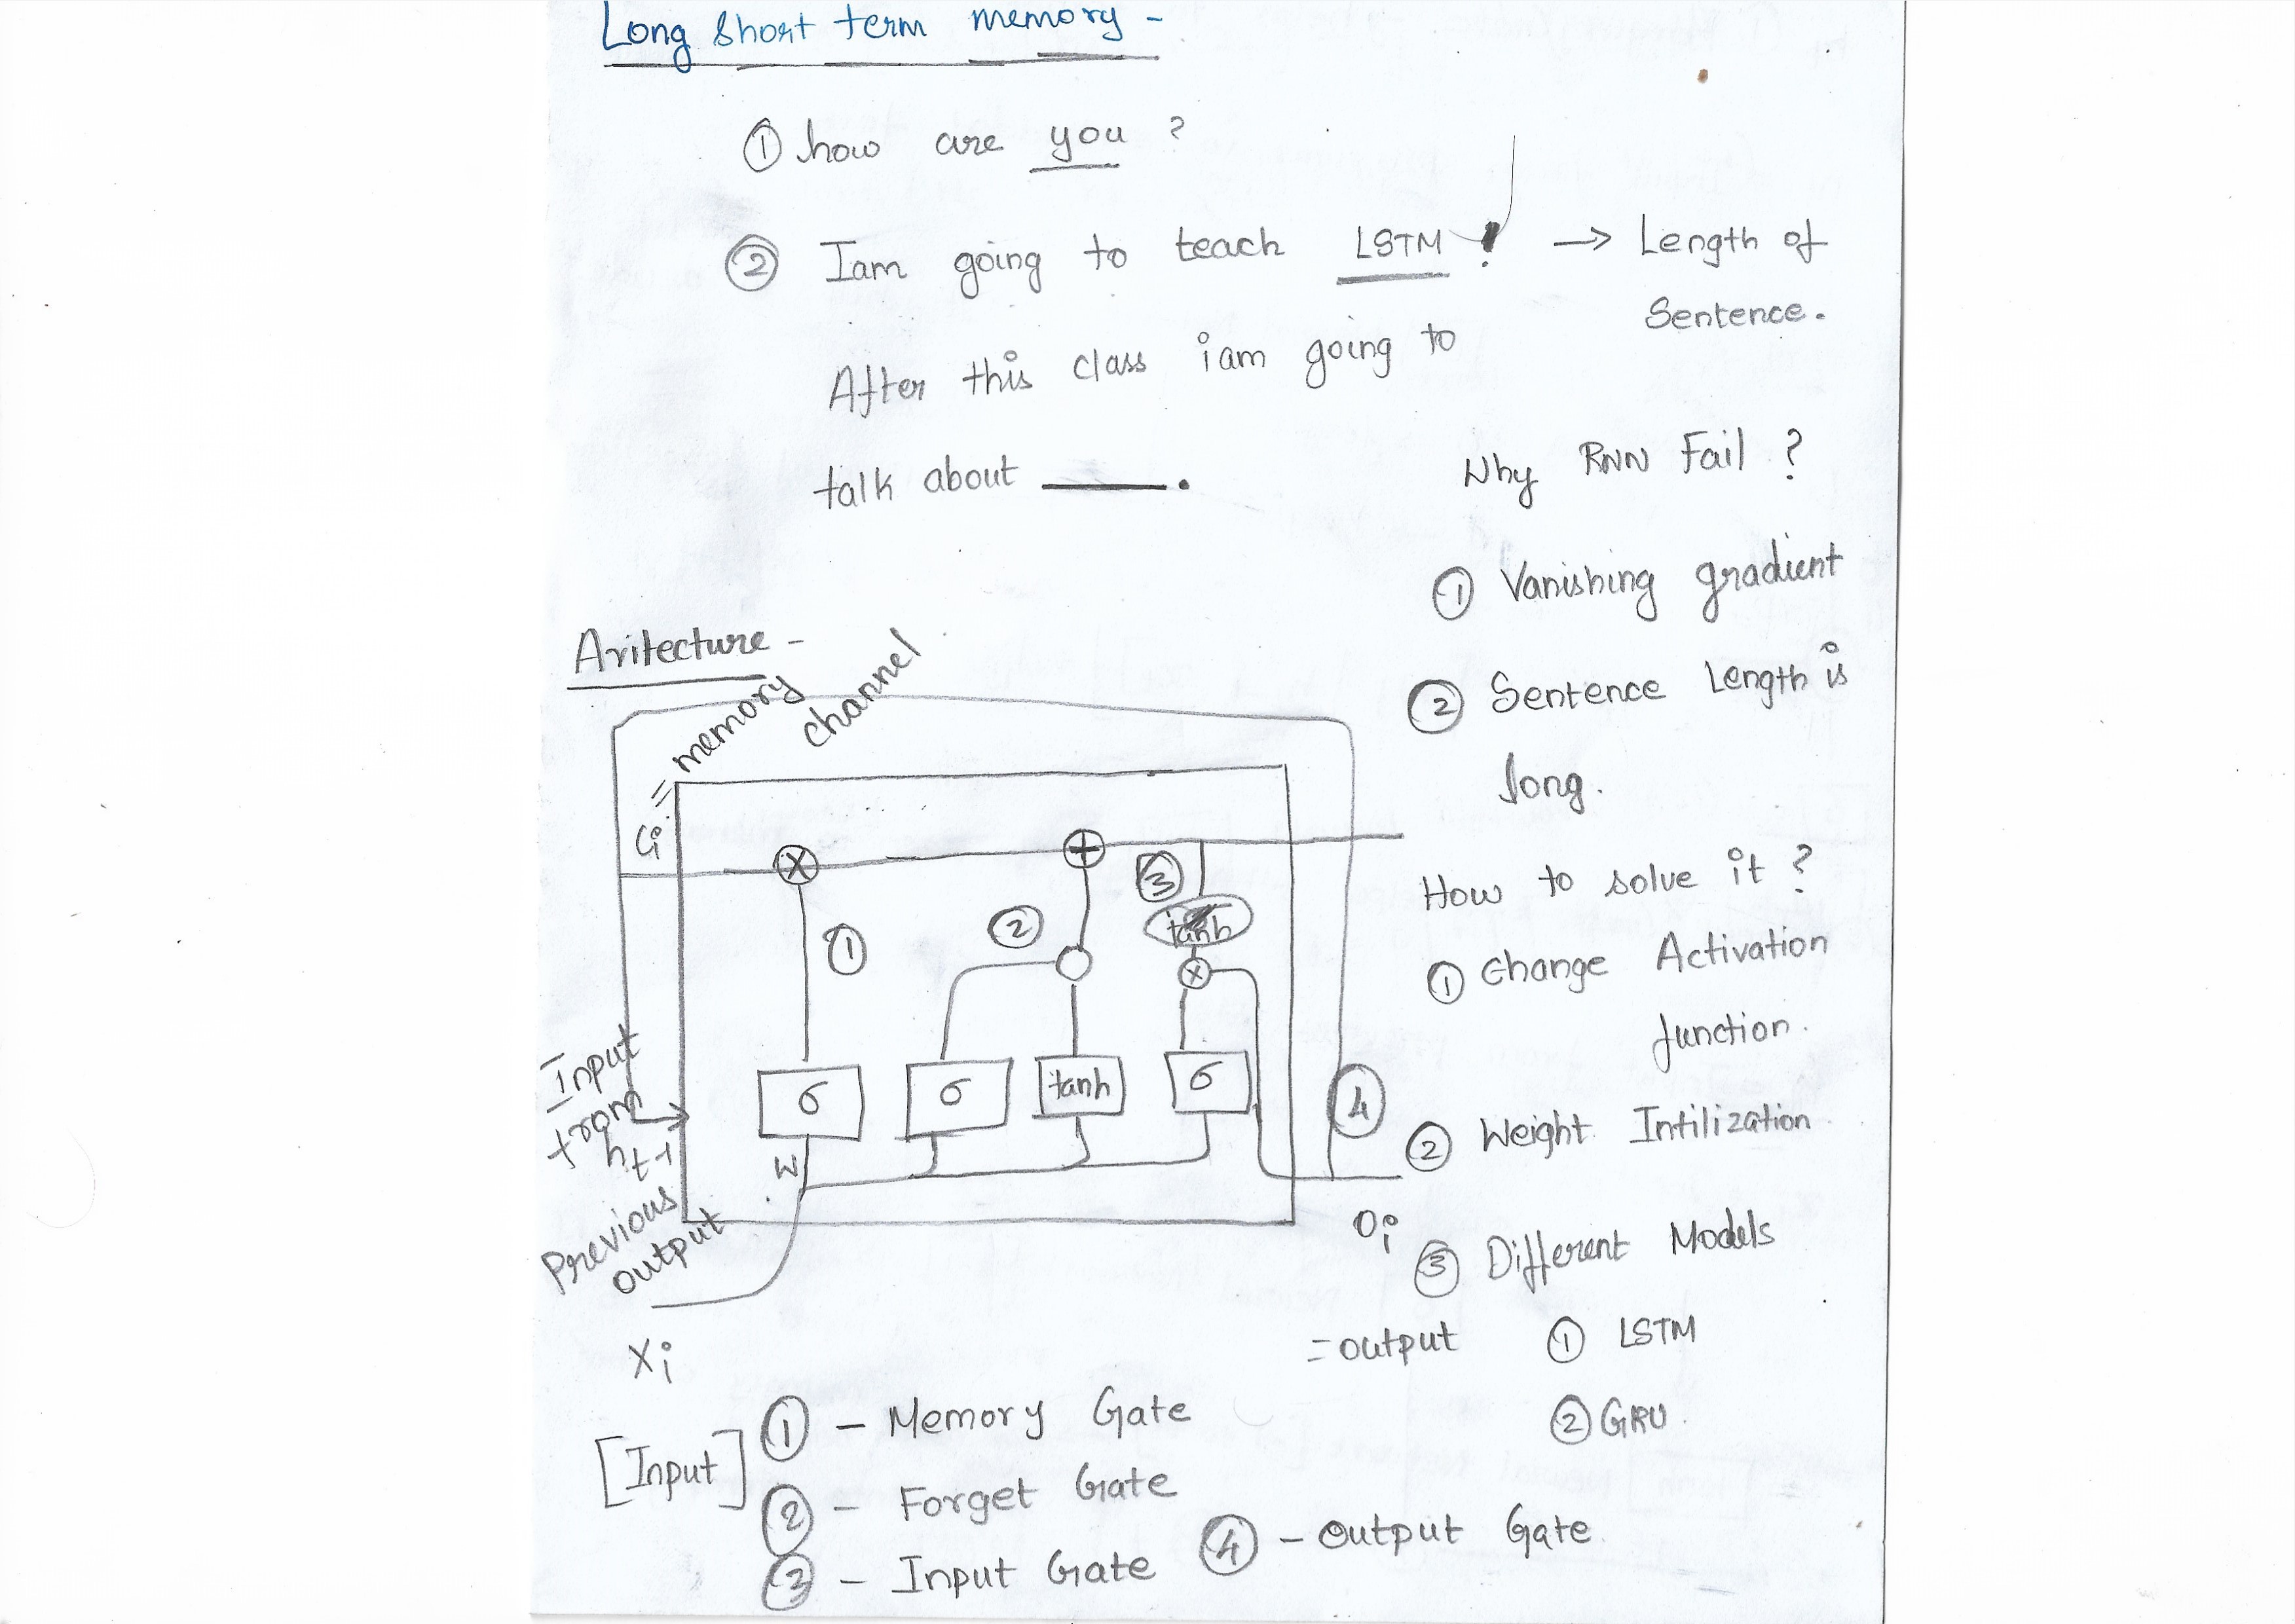 Long Short term memory -
① how are you ?
② Iam going to teach LSTM ! → Length of
Sentence.
After this class iam going to
talk about ______.
Why RNN Fail ?
① Vanishing gradient
② Sentence Length is
long.
How to solve it ?
① Change Activation
function.
② Weight Intilization
③ Different Models
① LSTM
② GRU.
Aritecture -
memory
channel
=
Ci
×
+
①
②
③
tanh
×
σ
σ
tanh
σ
④
W
Input
from
ht-1
Previous
output
Xi
[Input]
Oi
= output
① - Memory Gate
② - Forget Gate
③ - Input Gate
④ - Output Gate